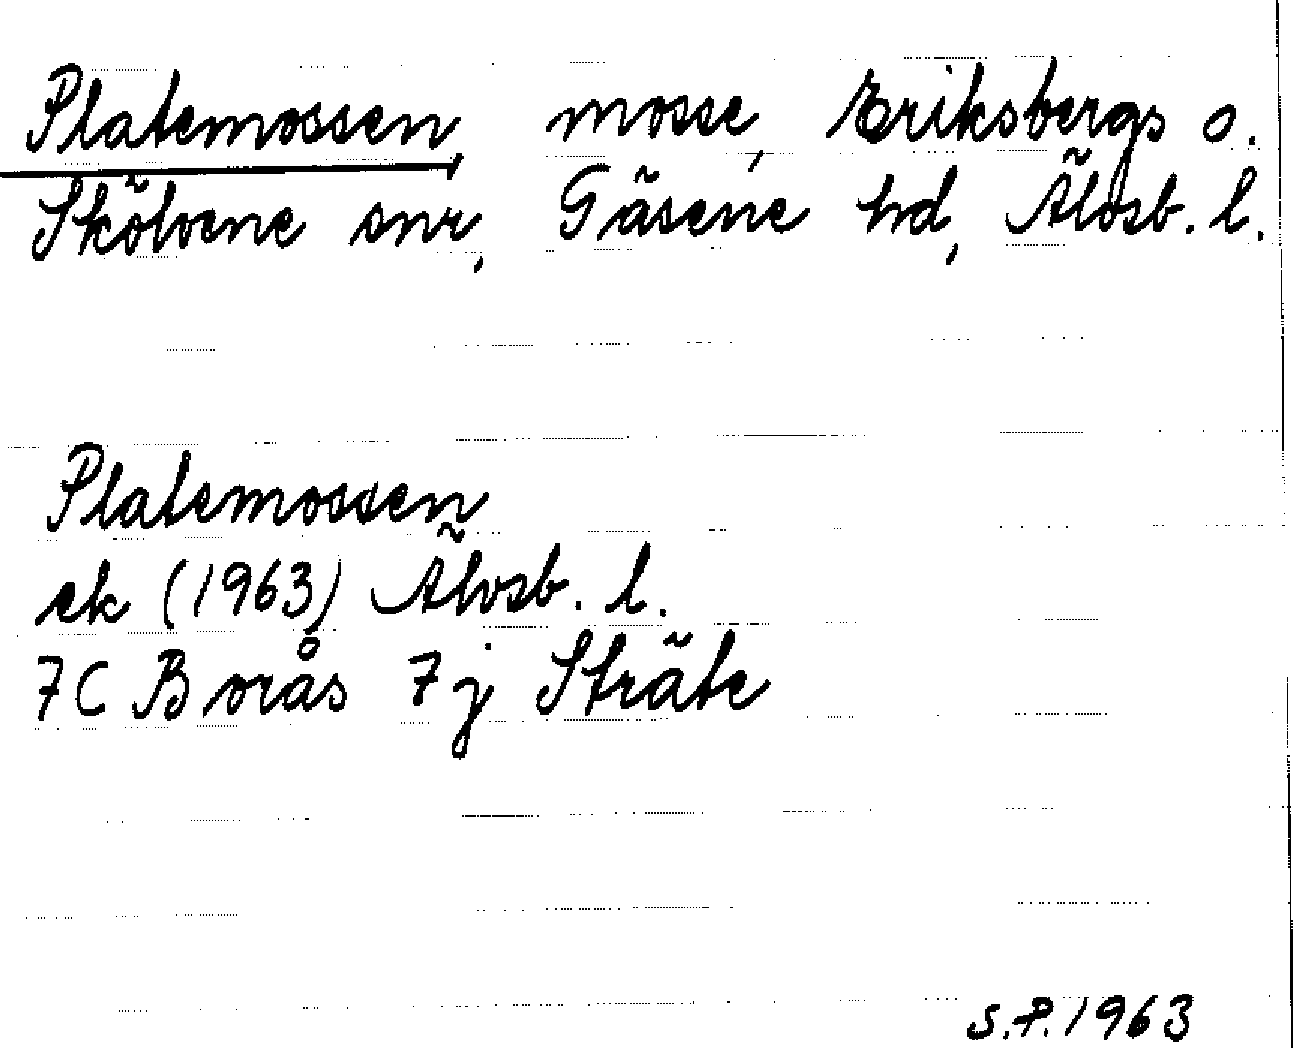 Platemossen, mosse, Eriksbergs o.
Skölvene snr, Gäsene hd, Älvsb. l.
Platemossen
ek (1963) Älvsb. l.
7C Borås 7j Sträte
S.P. 1963